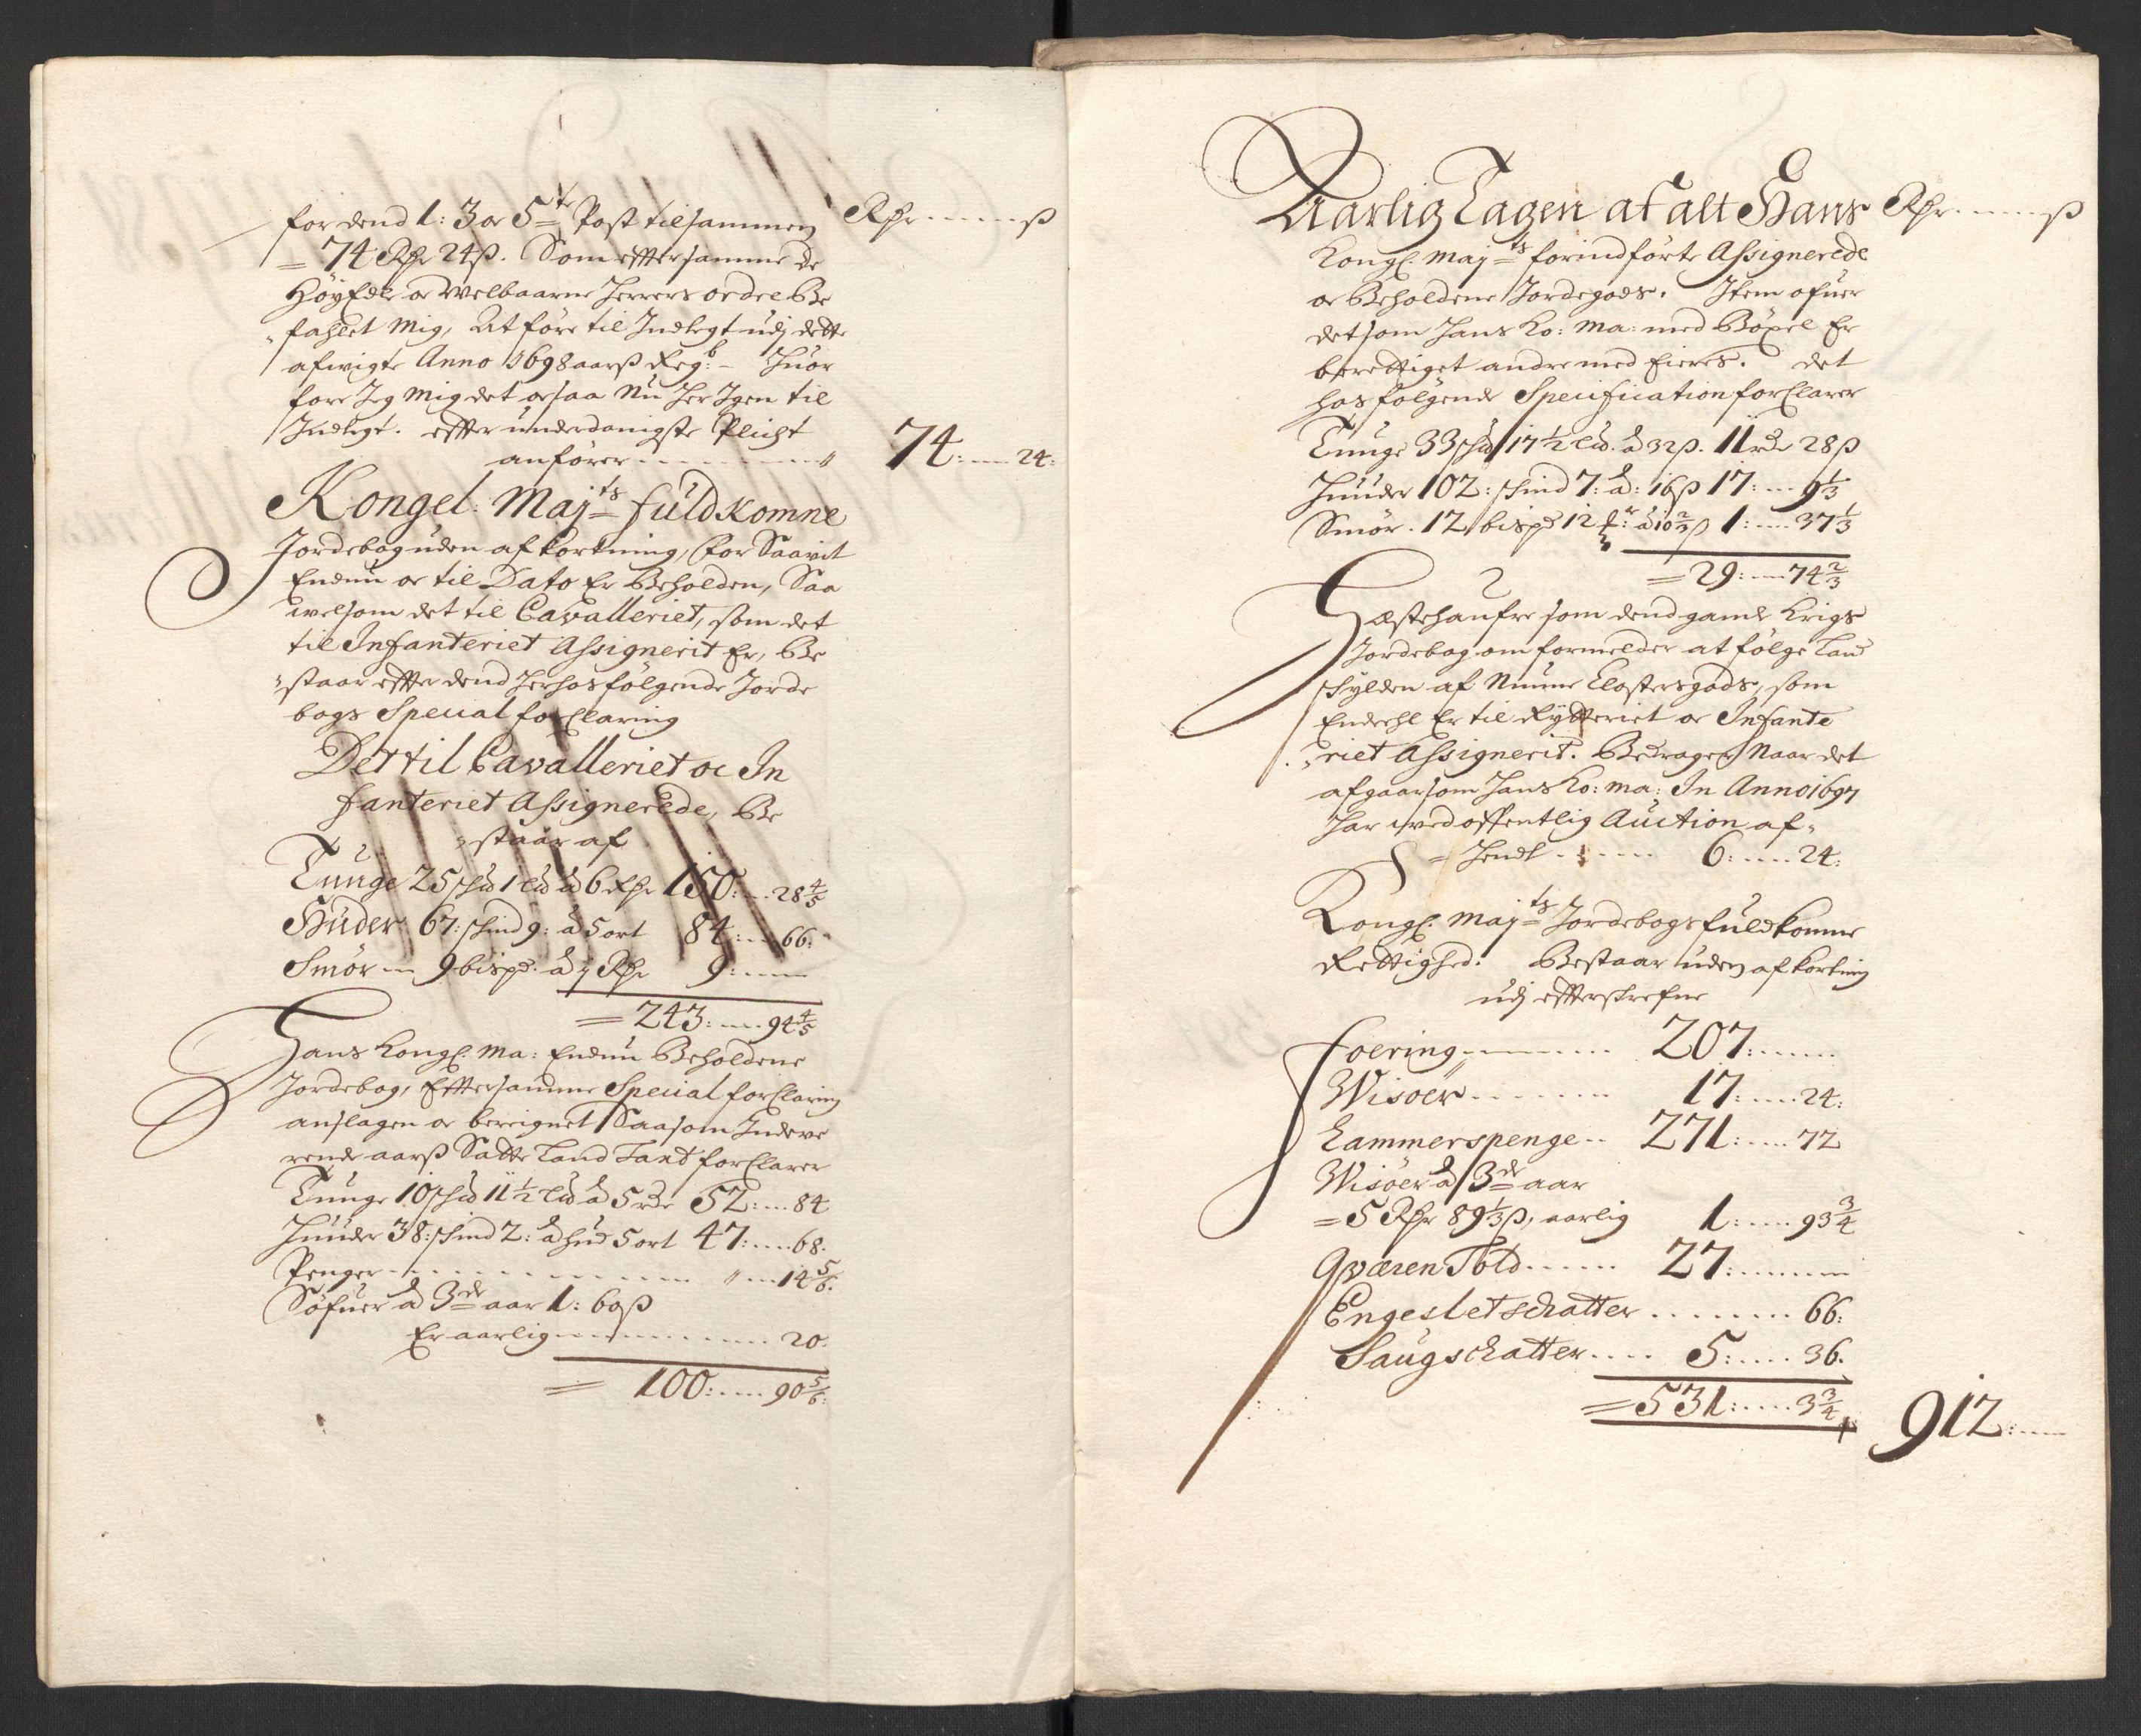 for dend 1: 3 oc 5te Post tilsammen Rdr ß
= 74 Rdr 24ß. Som effter samme de
Höyedle oc Welbaarne Herrers ordre Be
fahlet Mig, At före til Indtegt udj dette
afwigte Anno 1698 aars Regb: Huor
fore Jeg Mig det ocsaa Nu Her Igen til
Indtegt. effter underdanigste Plicht
anfører 74: 24:
Kongel: Majts fuldkomne
Jordebog uden afkortning, for Saavit
Endnu oc til Dato Er Beholden, Saa
velsom det til Cavalleriet, som det
til Infanteriet Assignerit Er, Be
staar effter dend Herhos følgende Jorde
bogs Special forklaring
Det til Cavalleriet oc In
fanteriet Assignerede, Be
staar af
Tunge 25 schd 1 Lid â 6 Rdr 150: 28 4/5
Huder 67: schind 9: â 5 ort 84: 66:
Smör 9 bispd. â 1 Rdr 9:
= 243: 94 4/5
Hans Kongl: Ma: Endnu Beholdene
Jordebog, Effter samme Special forklaring
anslagen oc beregnet Saasom Indeve
rende aars Satte Land Taxt forklarer
Tunge 10 schd 11 1/2 Lid â 5 rdr 52: 84
Huuder 38: schind 2: â hud 5 ort 47: 68.
Penger 14 5/6.
Söfuer â 3de aar 1: 60ß
Er aarlig 20.
= 100: 90 5/6:
Aarlig Tagen af alt Hans Rdr ß
Kongl: Majts forindførte Assignerede
oc Beholdene Jordegods. Item ofuer
det som Hans Ko: Ma: med Böxel Er
berettiget andre med Eieres. det
hos følgende Specification forklarer
Tunge 33 schd 17 1/2 Lid. â 32ß. 11 rdr 28ß
Huuder 102: schind 7: â: 16ß 17: 9 1/3
Smör. 12 bispd 12 â 10 2/3 ß 1: 37 1/3
= 29: 74 2/3
Hestehaufre som dend gamle Krigs
Jordebog om formelder at følge Land
schylden af Nunne Closters gods, som
Endeehl Er til Rytteriet oc Infante
riet Assignerit. Bedragen Naar det
afgaar som Hans Ko: Ma: In Anno 1697
Har ved offentlig Auction af
= hendt 6: 24:
Kongl: Majts Jordebogs fuldkomne
Rettighed: Bestaar uden afkortning
udj effterskrefne
Foering 207:
Wisoer 17: 24:
Lammerspenge 271: 72
Wisöer â 3de aar
= 5 Rdr 89 1/3 ß, aarlig 1: 93 3/4
Qværen Told 27:
Engesletschatter 66:
Saugschatter 5: 36.
= 531: 3 3/4 912: